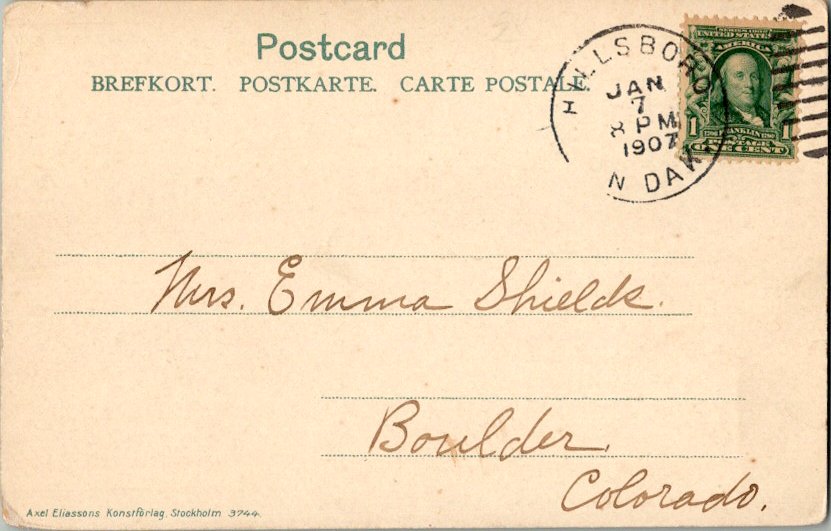 Postcard
BREFKORT. POSTKARTE. CARTE POSTALE.
HILLSBORO
JAN
7
8 PM
1907
N DAK
SERIES 1902
UNITED STATES OF
AMERICA
1 FRANKLIN 1
POSTAGE
ONE CENT
Mrs. Emma Shields.
Boulder,
Colorado.
Axel Eliassons Konstförlag, Stockholm 3744.